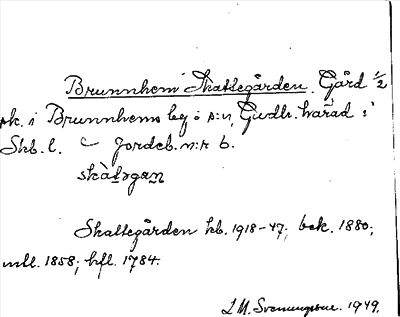 Brunnhem Skattegården. Gård 1/2
mk. i Brunnhems lkg o s:n, Gudh. härad i
Skb. l. Jordeb. n:r 6.
skàt͟əgan͟
Skattegården kb. 1918-47; bek. 1880;
mtl. 1858; hfl. 1784.
I M. Svenungsson. 1949.